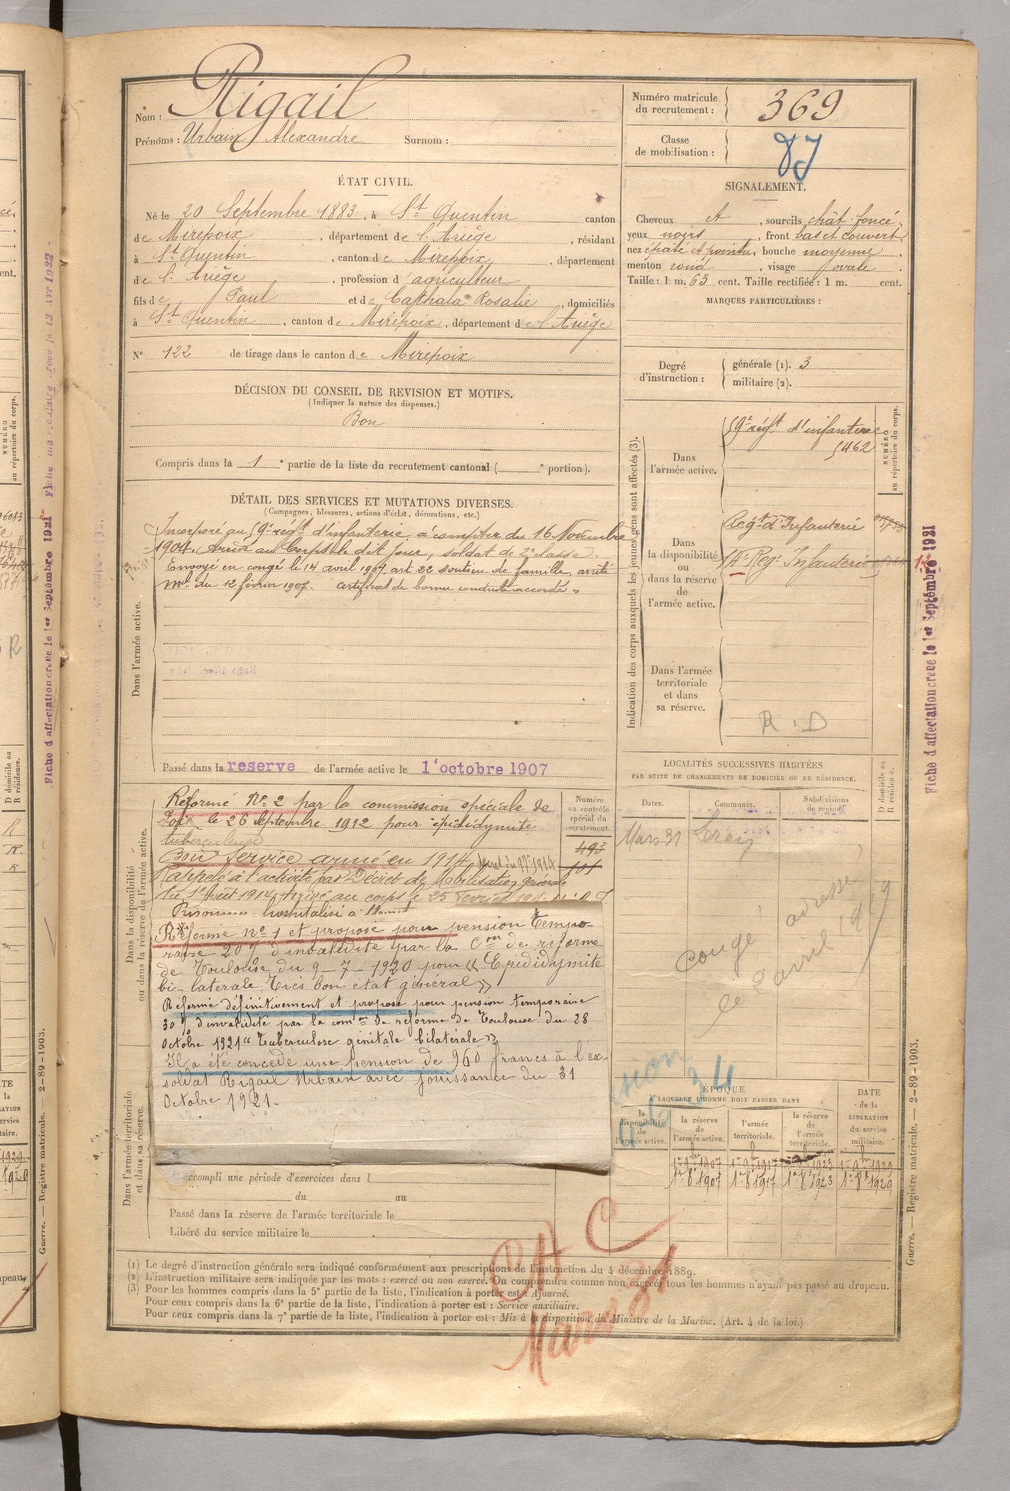 Nom : Rigail
Prénoms : Urbain Alexandre Surnom :
Numéro matricule du recrutement : 369
Classe de mobilisation :
ÉTAT CIVIL.
Né le 20 Septembre 1883, à St Quentin canton
de Mirepoix, département de l'Ariège, résidant
à St Quentin, canton de Mirepoix, département
de l'Ariège, profession d'agriculteur
fils de Paul et de Rosalie, domiciliés
à St Quentin, canton de Mirepoix, département de l'Ariège
N° 122 de tirage dans le canton de Mirepoix
SIGNALEMENT.
Cheveux et, sourcils chât. foncé
yeux noirs, front bas et couvert
nez épaté et pointu, bouche moyenne
menton rond, visage ovale
Taille : 1 m. 63 cent. Taille rectifiée : 1 m. cent.
MARQUES PARTICULIÈRES :
Degré d'instruction : générale (1). 3
militaire (2).
DÉCISION DU CONSEIL DE REVISION ET MOTIFS.
(Indiquer la nature des dispenses.)
Bon
Compris dans la 1e partie de la liste du recrutement cantonal ( e portion).
DÉTAIL DES SERVICES ET MUTATIONS DIVERSES.
(Campagnes, blessures, actions d'éclat, décorations, etc.)
Incorporé au régt d'infanterie à compter du 16 Novembre
1904. Arrivé au Corps le dit jour, soldat de 2e classe.
Envoyé en congé le 14 avril 1907 art 22 soutien de famille, arrêté
Mel du 12 février 1907. certificat de bonne conduite accordé
Dans l'armée active.
Passé dans la reserve de l'armée active le 1 octobre 1907
Indication des corps auxquels les jeunes gens sont affectés (3).
NUMÉRO au répertoire du corps.
Dans l'armée active.
régt d'infanterie
5462
Dans la disponibilité ou dans la réserve de l'armée active.
Régt d'Infanterie
Reg. Infanterie
Dans l'armée territoriale et dans sa réserve.
R. D
Fiche d'affectation creee le 1er Septembre 1921
Dans la disponibilité ou dans la réserve de l'armée active.
Réformé No 2 par la commission spéciale de
Foix le 26 Septembre 1912 pour épididymite
tuberculeuse
Bon Service armé en 1914
Rappelé à l'activité par Décret de Mobilisation générale
du 1er Août 1914. Arrivé au corps le 25 février
Réformé no 1 et proposé pour pension tempo-
raire 20% d'invalidité par la Con de réforme
de Toulouse du 9-7-1920 pour « Epididymite
bi-latérale Très bon état général »
Réformé définitivement et proposé pour pension temporaire
30% d'invalidité par la comon de réforme de Toulouse du 28
octobre 1921 "Tuberculose génitale bilatérale"
Il a été concédé une pension de 960 francs à l'ex-
soldat Rigail Urbain avec jouissance du 31
Octobre 1921.
Numéro au contrôle spécial du recrutement.
493
LOCALITÉS SUCCESSIVES HABITÉES
PAR SUITE DE CHANGEMENTS DE DOMICILE OU DE RÉSIDENCE.
Dates. Communes. Subdivisions de région.
D domicile ou R résidence.
Mars 31
Congé adresse
le avril 1919
ÉPOQUE
À LAQUELLE L'HOMME DOIT PASSER DANS
la disponibilité de l'armée active.
la réserve de l'armée active.
l'armée territoriale.
la réserve de l'armée territoriale.
DATE de la LIBÉRATION du service militaire.
1907 1917 1923 1929
1907 1917 1923 1929
Dans l'armée territoriale et dans sa réserve.
accompli une période d'exercices dans l
du au
Passé dans la réserve de l'armée territoriale le
Libéré du service militaire le
Guerre. — Registre matricule. — 2-89-1903.
(1) Le degré d'instruction générale sera indiqué conformément aux prescriptions de l'instruction du 4 décembre 1889.
(2) L'instruction militaire sera indiquée par les mots : exercé ou non exercé. On comprendra comme non exercés tous les hommes n'ayant pas passé au drapeau.
(3) Pour les hommes compris dans la 5e partie de la liste, l'indication à porter est : Ajourné.
Pour ceux compris dans la 6e partie de la liste, l'indication à porter est : Service auxiliaire.
Pour ceux compris dans la 7e partie de la liste, l'indication à porter est : Mis à la disposition du Ministre de la Marine. (Art. 4 de la loi.)